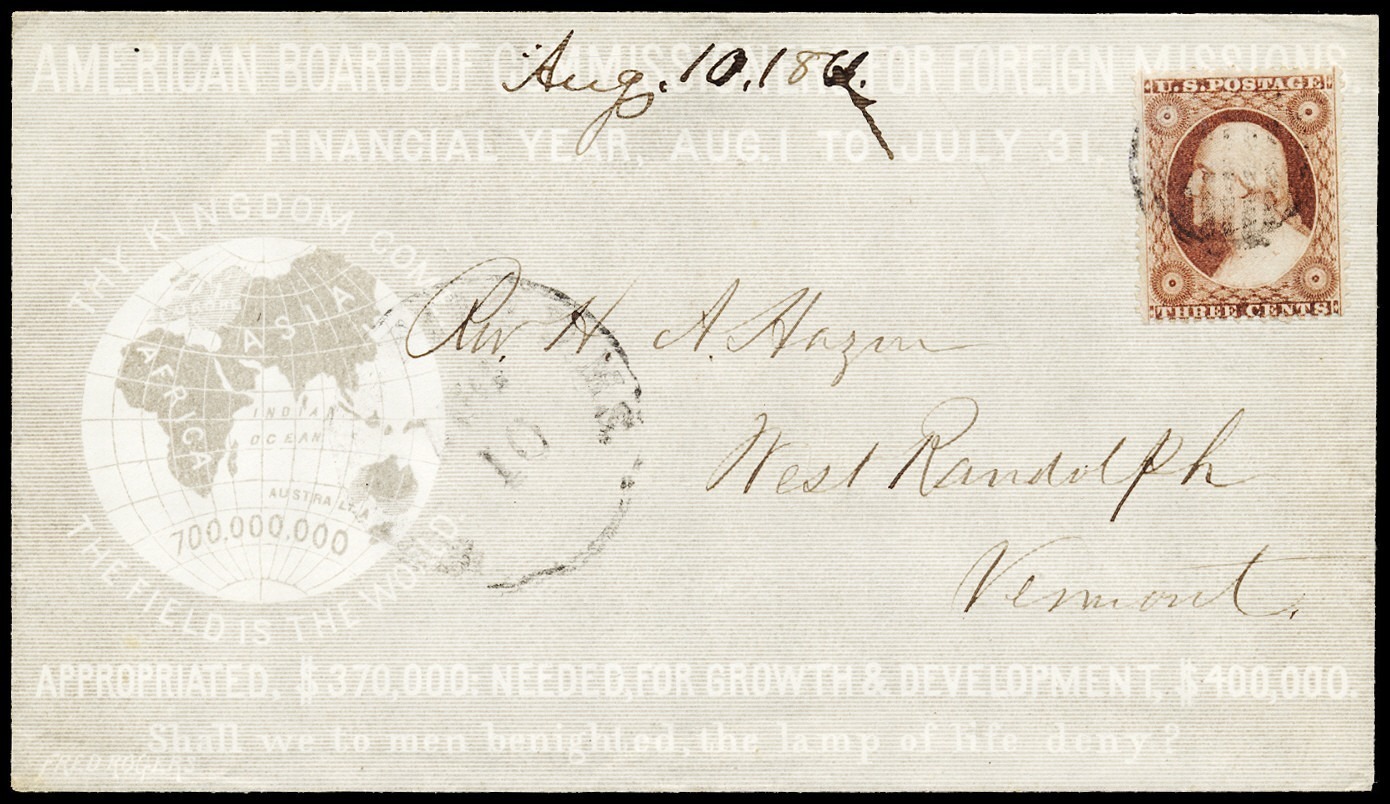 AMERICAN BOARD OF COMMISSIONERS FOR FOREIGN MISSIONS,
Aug. 10. 1861.
FINANCIAL YEAR, AUG. 1 TO JULY 31.
U.S. POSTAGE
THREE CENTS
THY KINGDOM COME
ASIA
AFRICA
INDIAN
OCEAN
AUSTRALIA
700,000,000
THE FIELD IS THE WORLD
MS.
10
Rev. H. A. Hazen
West Randolph
Vermont.
APPROPRIATED, $370,000: NEEDED, FOR GROWTH & DEVELOPMENT, $400,000.
Shall we to men benighted, the lamp of life deny?
FRED. ROGERS